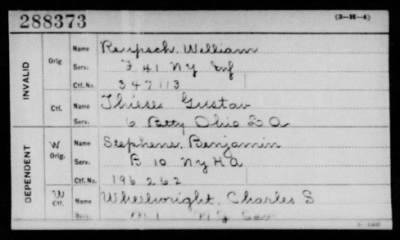 288373
(3-H-4)
INVALID
Orig.
Name Reupsch, William
Serv. F 41 NY Inf
Ctf. No. 347113
Ctf.
Name Thiese Gustav
Serv. 6 Batty Ohio L A
DEPENDENT
W Orig.
Name Stephens, Benjamin
Serv. B 10 NY H A
Ctf. No. 196262
W Ctf.
Name Wheelwright, Charles S
Serv. M 1